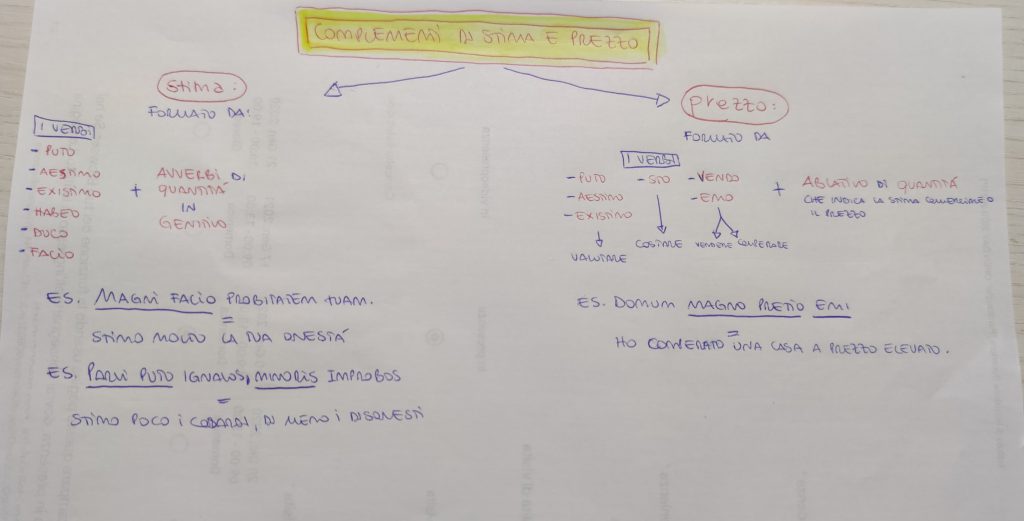 COMPLEMENTI DI STIMA E PREZZO
stima:
FORMATO DA:
I VERBI
- PUTO
- AESTIMO
- EXISTIMO
- HABEO
- DUCO
- FACIO
+
AVVERBI DI
QUANTITÁ
IN
GENITIVO
ES. MAGNI FACIO PROBITATEM TUAM.
=
STIMO MOLTO LA TUA ONESTÁ
ES. PARVI PUTO IGNAVOS, MINORIS IMPROBOS
=
STIMO POCO I CODARDI, DI MENO I DISONESTI
prezzo:
FORMATO DA
I VERBI
- PUTO
- AESTIMO
- EXISTIMO
VALUTARE
- STO
COSTARE
- VENDO
- EMO
VENDERE COMPERARE
+
ABLATIVO DI QUANTITÁ
CHE INDICA LA STIMA COMMERCIALE O
IL PREZZO
ES. DOMUM MAGNO PRETIO EMI
=
HO COMPERATO UNA CASA A PREZZO ELEVATO.